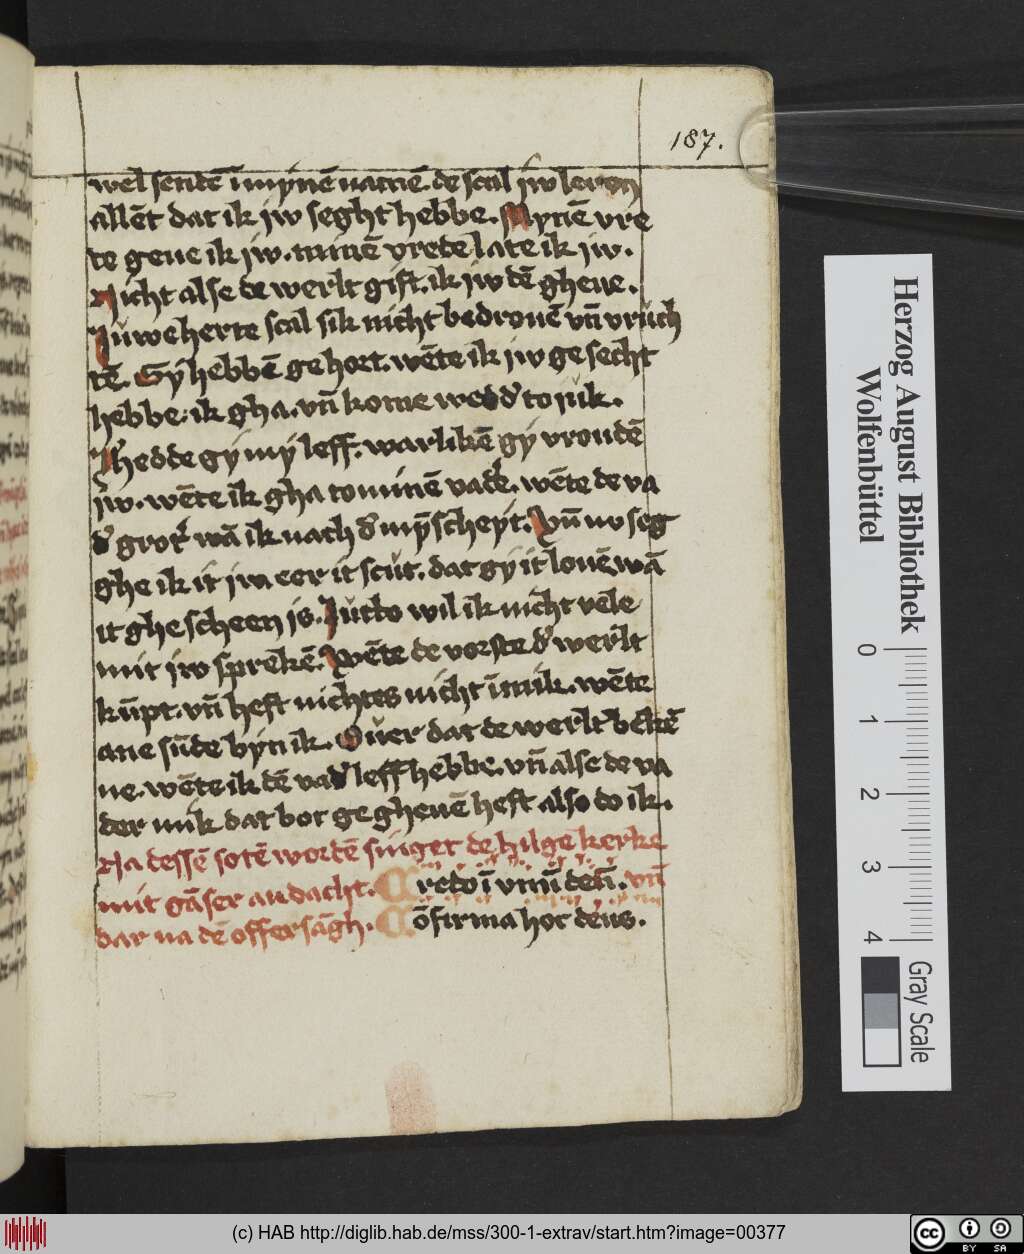 187.
wel sendē ī mynē namē. de scal jw leren
allēt dat ik jw seght hebbe. Mynē vre
te geue ik jw. minē vrede late ik jw.
Nicht alse de werlt gift. ik jw dē gheue.
Juwe herte scal sik nicht bedrouē vn̄ vruch
tē. Gy hebbē gehort. wēte ik jw gesecht
hebbe. ik gha. vn̄ kome wedd' to juk.
Jhedde gy my leff. warlikē gy vroudē
jw. wēte ik gha to minē vad'e. wēte de va
d' grot' wā ik nach d' mȳscheyt. Vn̄ nv seg
ghe ik it jw eer it scut. dat gy it louē wā
it ghescheen is. Jutto wil ik nicht vele
mit jw sprekē. Wēte de vorste d' werlt
kūpt. vn̄ heft nichtes nicht ī mik. wēte
ane sūde byn ik. Ouer dat de werlt bekē
ne. wēte ik dē vad' leff hebbe. vn̄ alse de va
der mik dat bot gegheuē heft also do ik.
Na dessē sotē wordē singet de hilge kerke
mit gāser andacht. Credo ī vnū deū. vn̄
dar na dē offersāgh. Cōfirma hoc deus.
Herzog August Bibliothek
Wolfenbüttel
0 1 2 3 4
Gray Scale
(c) HAB http://diglib.hab.de/mss/300-1-extrav/start.htm?image=00377
cc BY SA